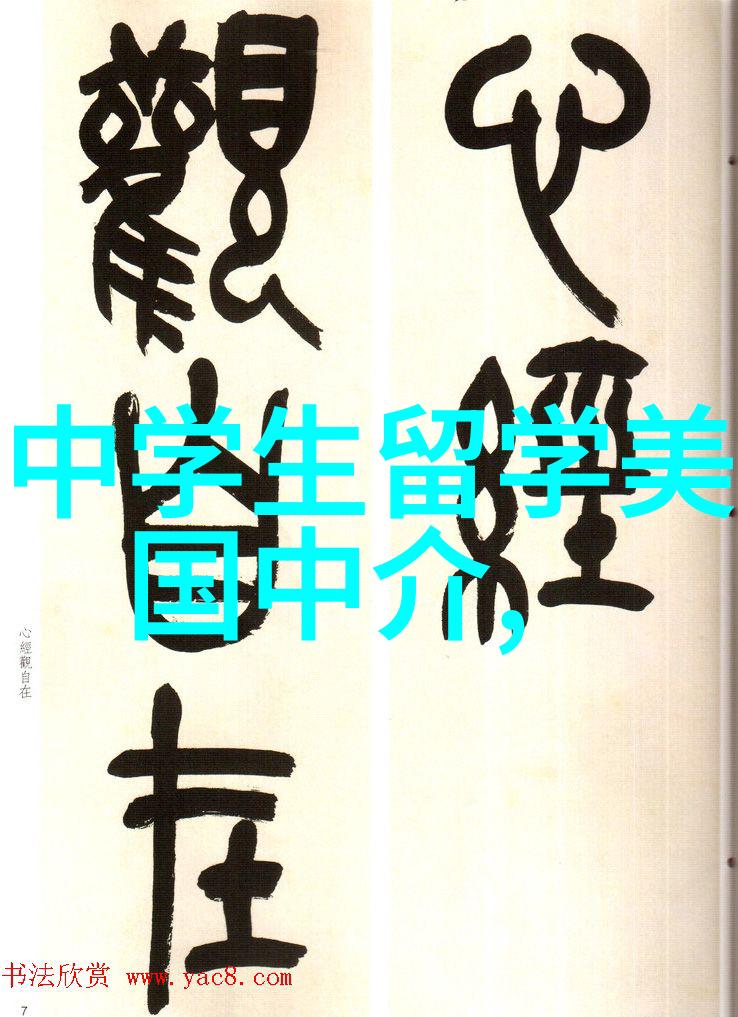 心經
觀自在
中学生留学美
国中介,
心經觀自在
书法欣赏 www.yac8.com
7